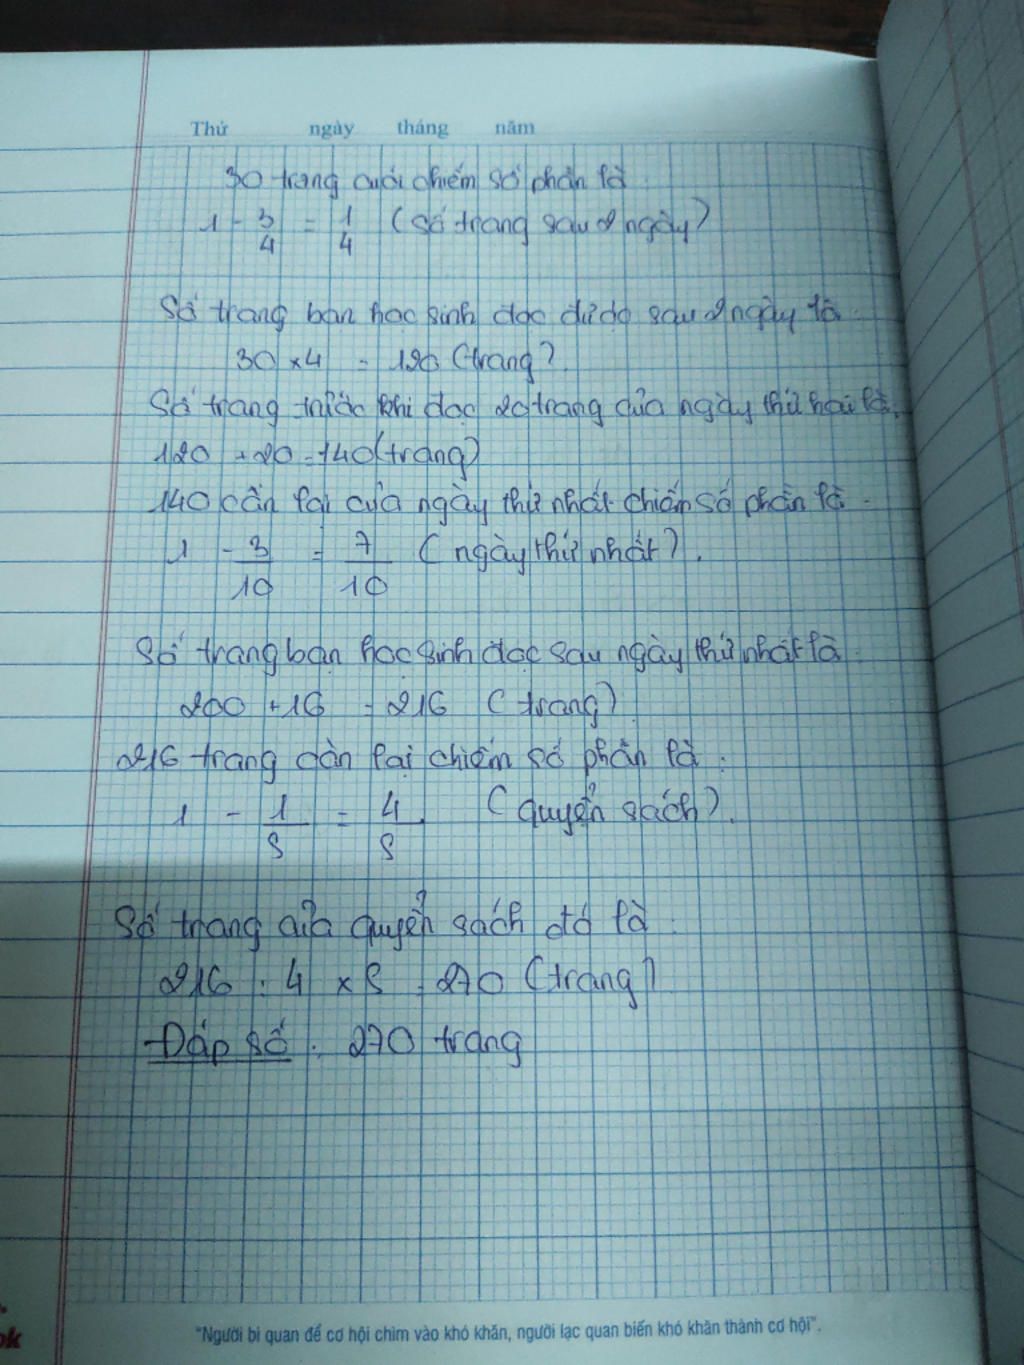 Thứ ngày tháng năm
30 trang cuối chiếm số phần là
1 - 3/4 = 1/4 (số trang sau 2 ngày)
Số trang bạn học sinh đọc được sau 2 ngày là
30 x 4 = 120 (trang)
Số trang trước khi đọc 20 trang của ngày thứ hai là.
120 + 20 = 140 (trang)
140 còn lại của ngày thứ nhất chiếm số phần là
1 - 3/10 = 7/10 (ngày thứ nhất).
Số trang bạn học sinh đọc sau ngày thứ nhất là
200 + 16 = 216 (trang)
216 trang còn lại chiếm số phần là:
1 - 1/5 = 4/5 (quyển sách).
Số trang của quyển sách đó là:
216 : 4 x 5 = 270 (trang)
Đáp số: 270 trang
"Người bi quan để cơ hội chìm vào khó khăn, người lạc quan biến khó khăn thành cơ hội".
ok